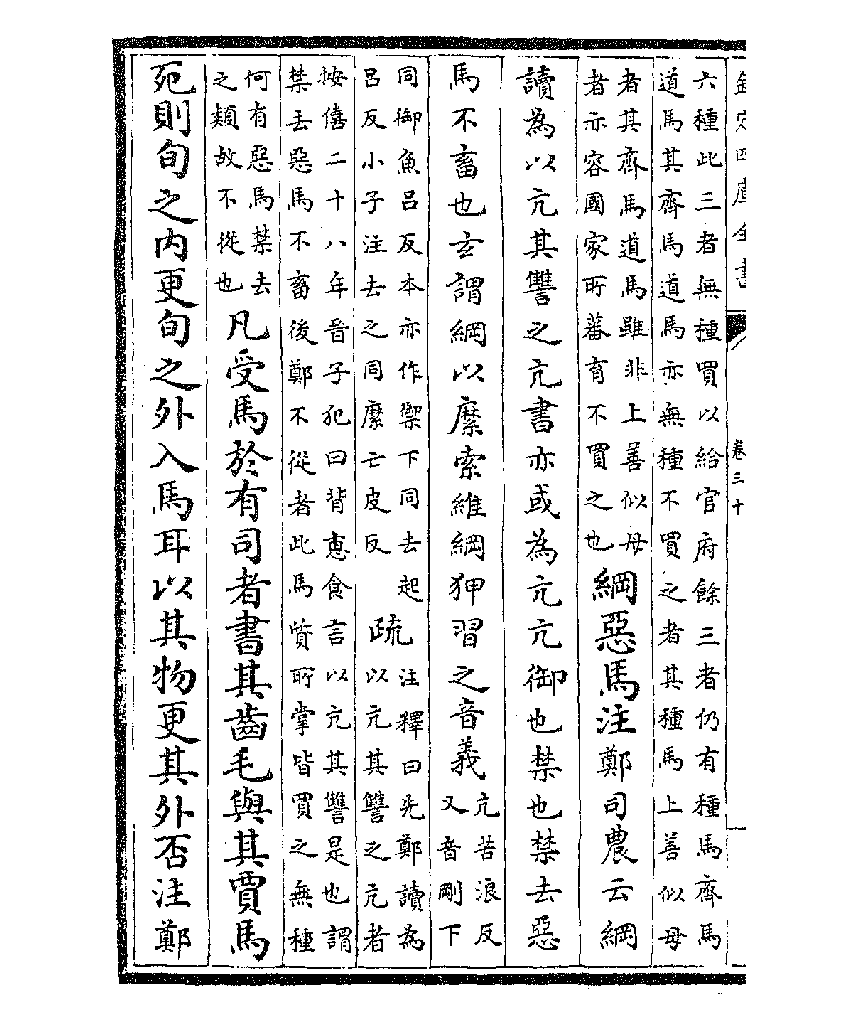 欽定四庫全書
卷三十
六種此三者無種買以給官府餘三者仍有種馬齊馬
道馬其齊馬道馬亦無種不買之者其種馬上善似母
者其齊馬道馬雖非上善似母
者亦容國家所蕃育不買之也
綱惡馬注鄭司農云綱
讀為以亢其讐之亢書亦或為亢亢御也禁也禁去惡
馬不畜也玄謂綱以縻索維綱狎習之音義
亢苦浪反
又音剛下
同御魚吕反本亦作禦下同去起
吕反小子注去之同縻亡皮反
疏
注釋曰先鄭讀為
以亢其讐之亢者
按僖二十八年晉子犯曰背惠食言以亢其讐是也謂
禁去惡馬不畜後鄭不從者此馬質所掌皆買之無種
何有惡馬禁去
之類故不從也
凡受馬於有司者書其齒毛與其賈馬
死則旬之内更旬之外入馬耳以其物更其外否注鄭